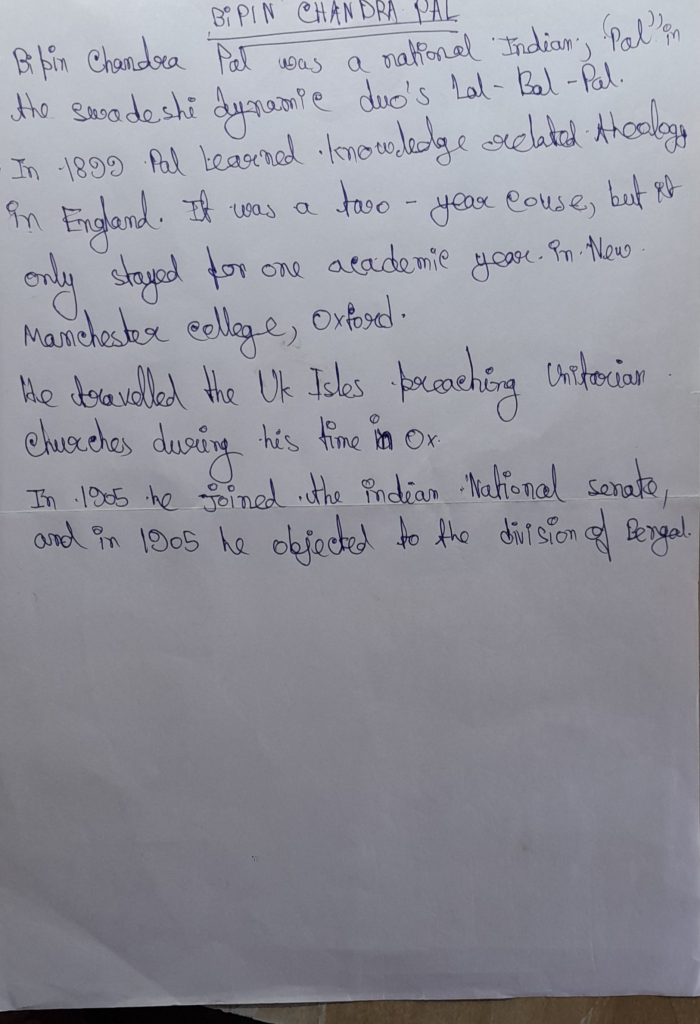 BIPIN CHANDRA PAL
Bipin Chandra Pal was a national Indian, "Pal" in
the swadeshi dynamic duo's Lal-Bal-Pal.
In 1899 Pal Learned knowledge related theology
in England. It was a two-year couse, but it
only stayed for one academic year in New
Manchester college, Oxford.
He travelled the Uk Isles preaching Unitarian
churches during his time in Ox.
In 1905 he joined the indian National senate,
and in 1905 he objected to the division of Bengal.